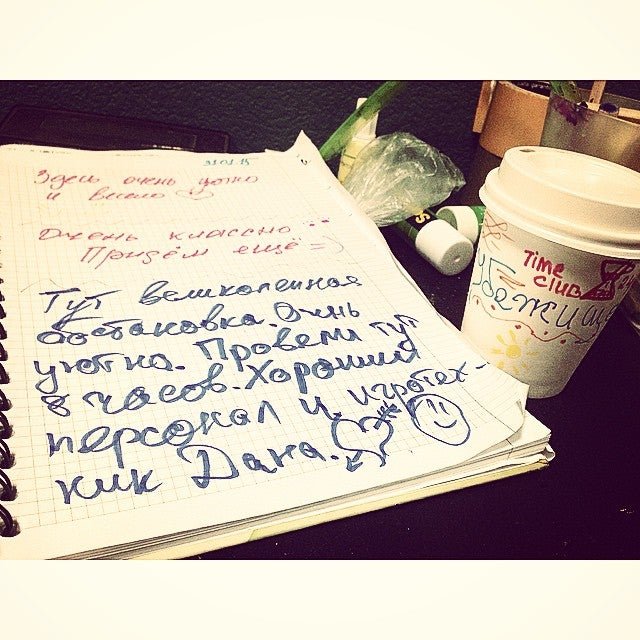 31.01.15
Здесь очень уютно
и весело
Очень классно...
Придём ещё =)
Тут великолепная
обстановка. Очень
уютно. Провели тут
8 часов. Хороший
персонал и игротех-
ник Дана.
Time
Club
Убежище